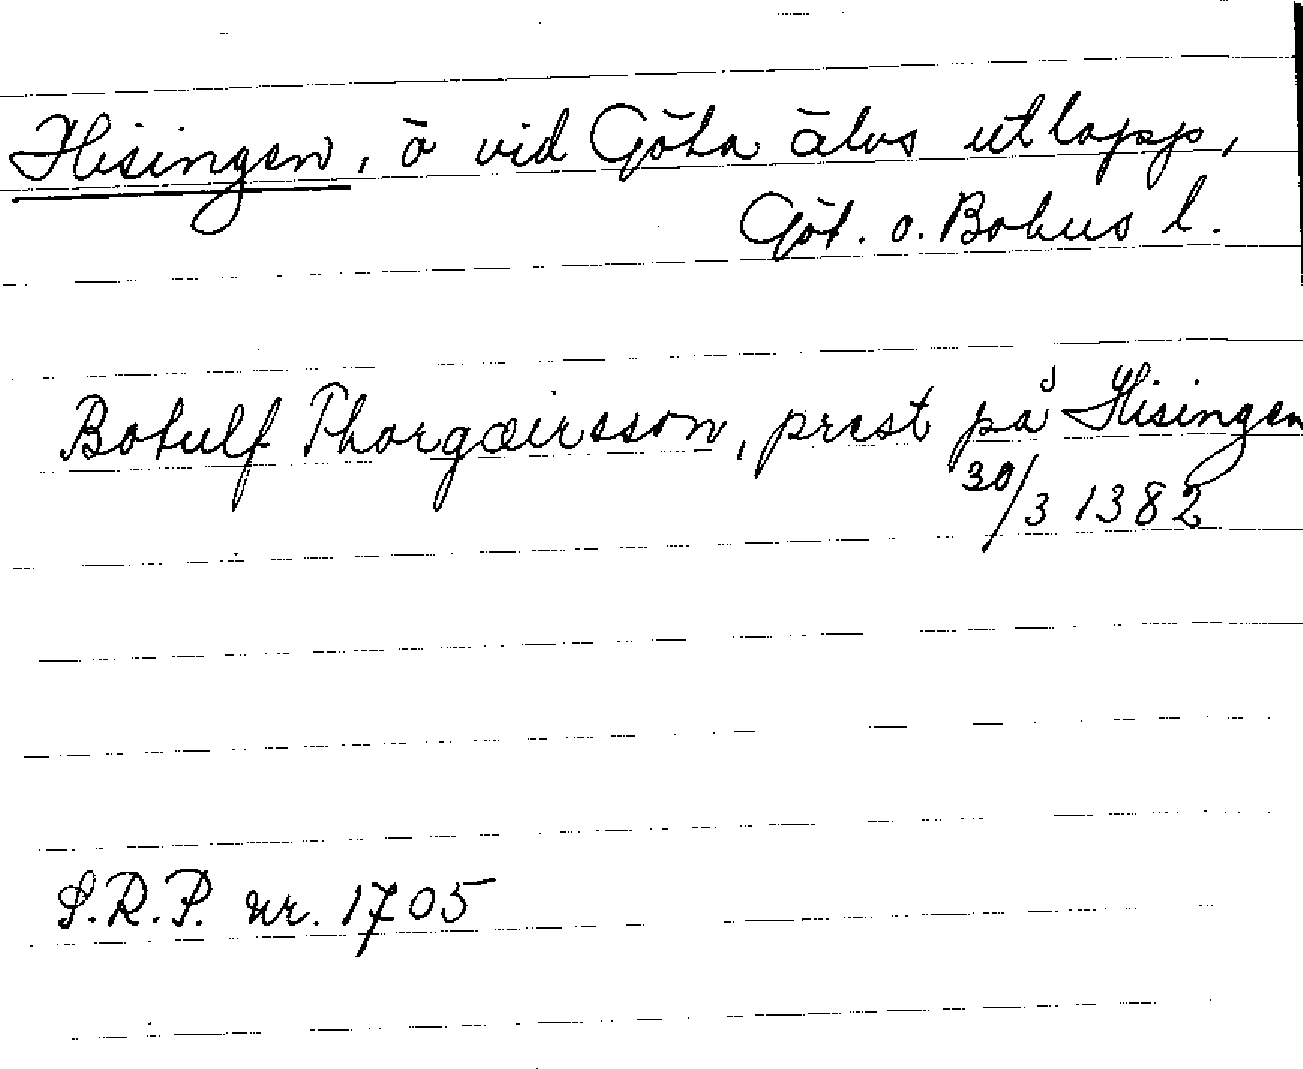 Hisingen, ö vid Göta älvs utlopp,
Göt. o. Bohus l.
Botulf Thorgæirsson, prest på Hisingen
30/3 1382
S.R.P. nr. 1705